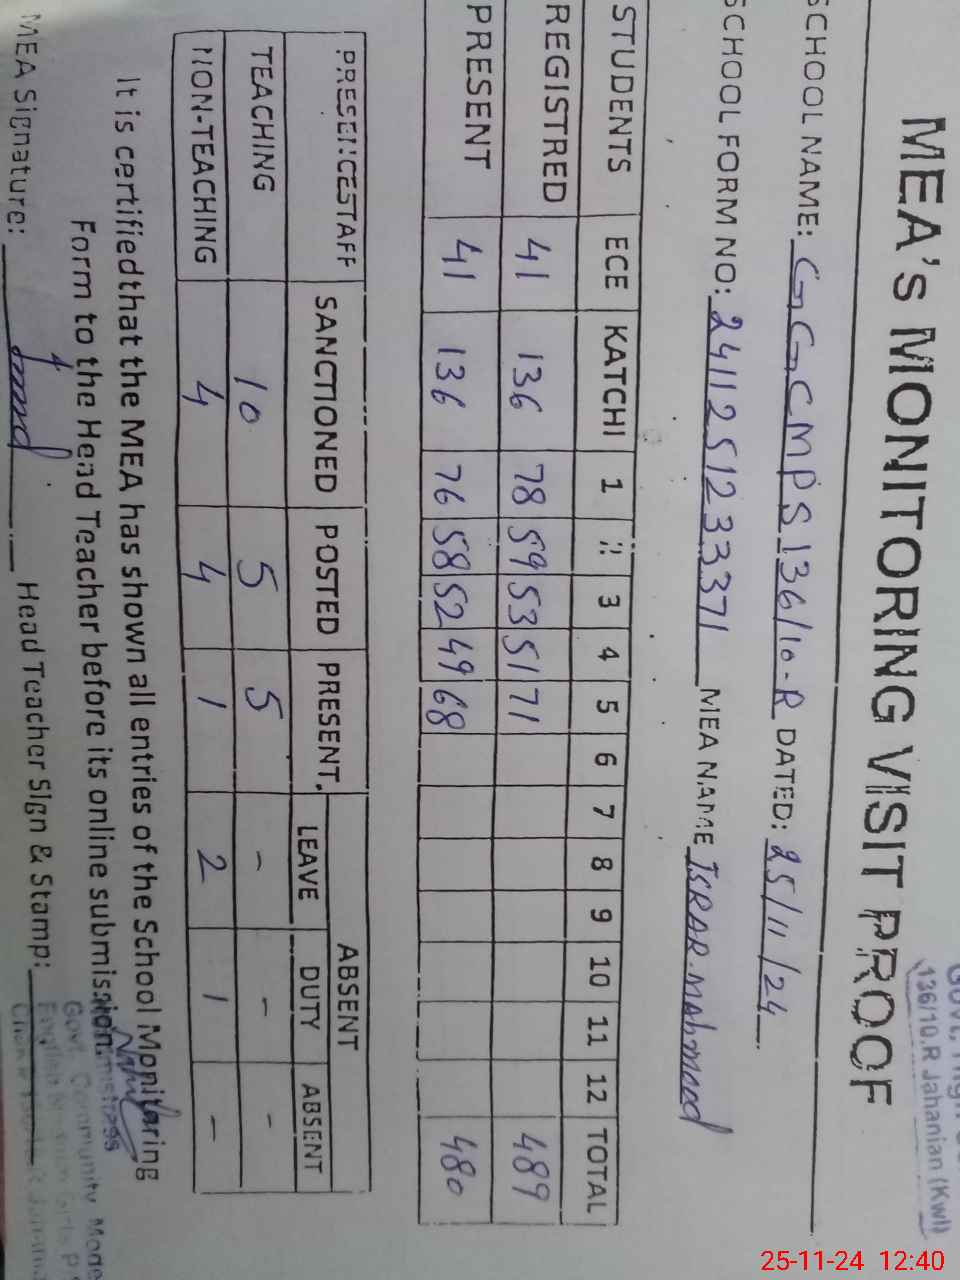 136/10.R Jahanian (Kwl)
MEA's MONITORING VISIT PROOF
SCHOOL NAME: GGCMPS 136/10-R DATED: 25/11/24
SCHOOL FORM NO: 2411251233371 MEA NAME ISRAR Mahmood
STUDENTS ECE KATCHI 1 2 3 4 5 6 7 8 9 10 11 12 TOTAL
REGISTRED 41 136 78 59 53 51 71 489
PRESENT 41 136 76 58 52 49 68 480
PRESENCESTAFF SANCTIONED POSTED PRESENT ABSENT
LEAVE DUTY ABSENT
TEACHING 10 5 5 - - -
NON-TEACHING 4 4 1 2 1 -
It is certified that the MEA has shown all entries of the School Monitoring
Form to the Head Teacher before its online submission.
MEA Signature: Head Teacher Sign & Stamp:
Govt. Community Mode
25-11-24 12:40